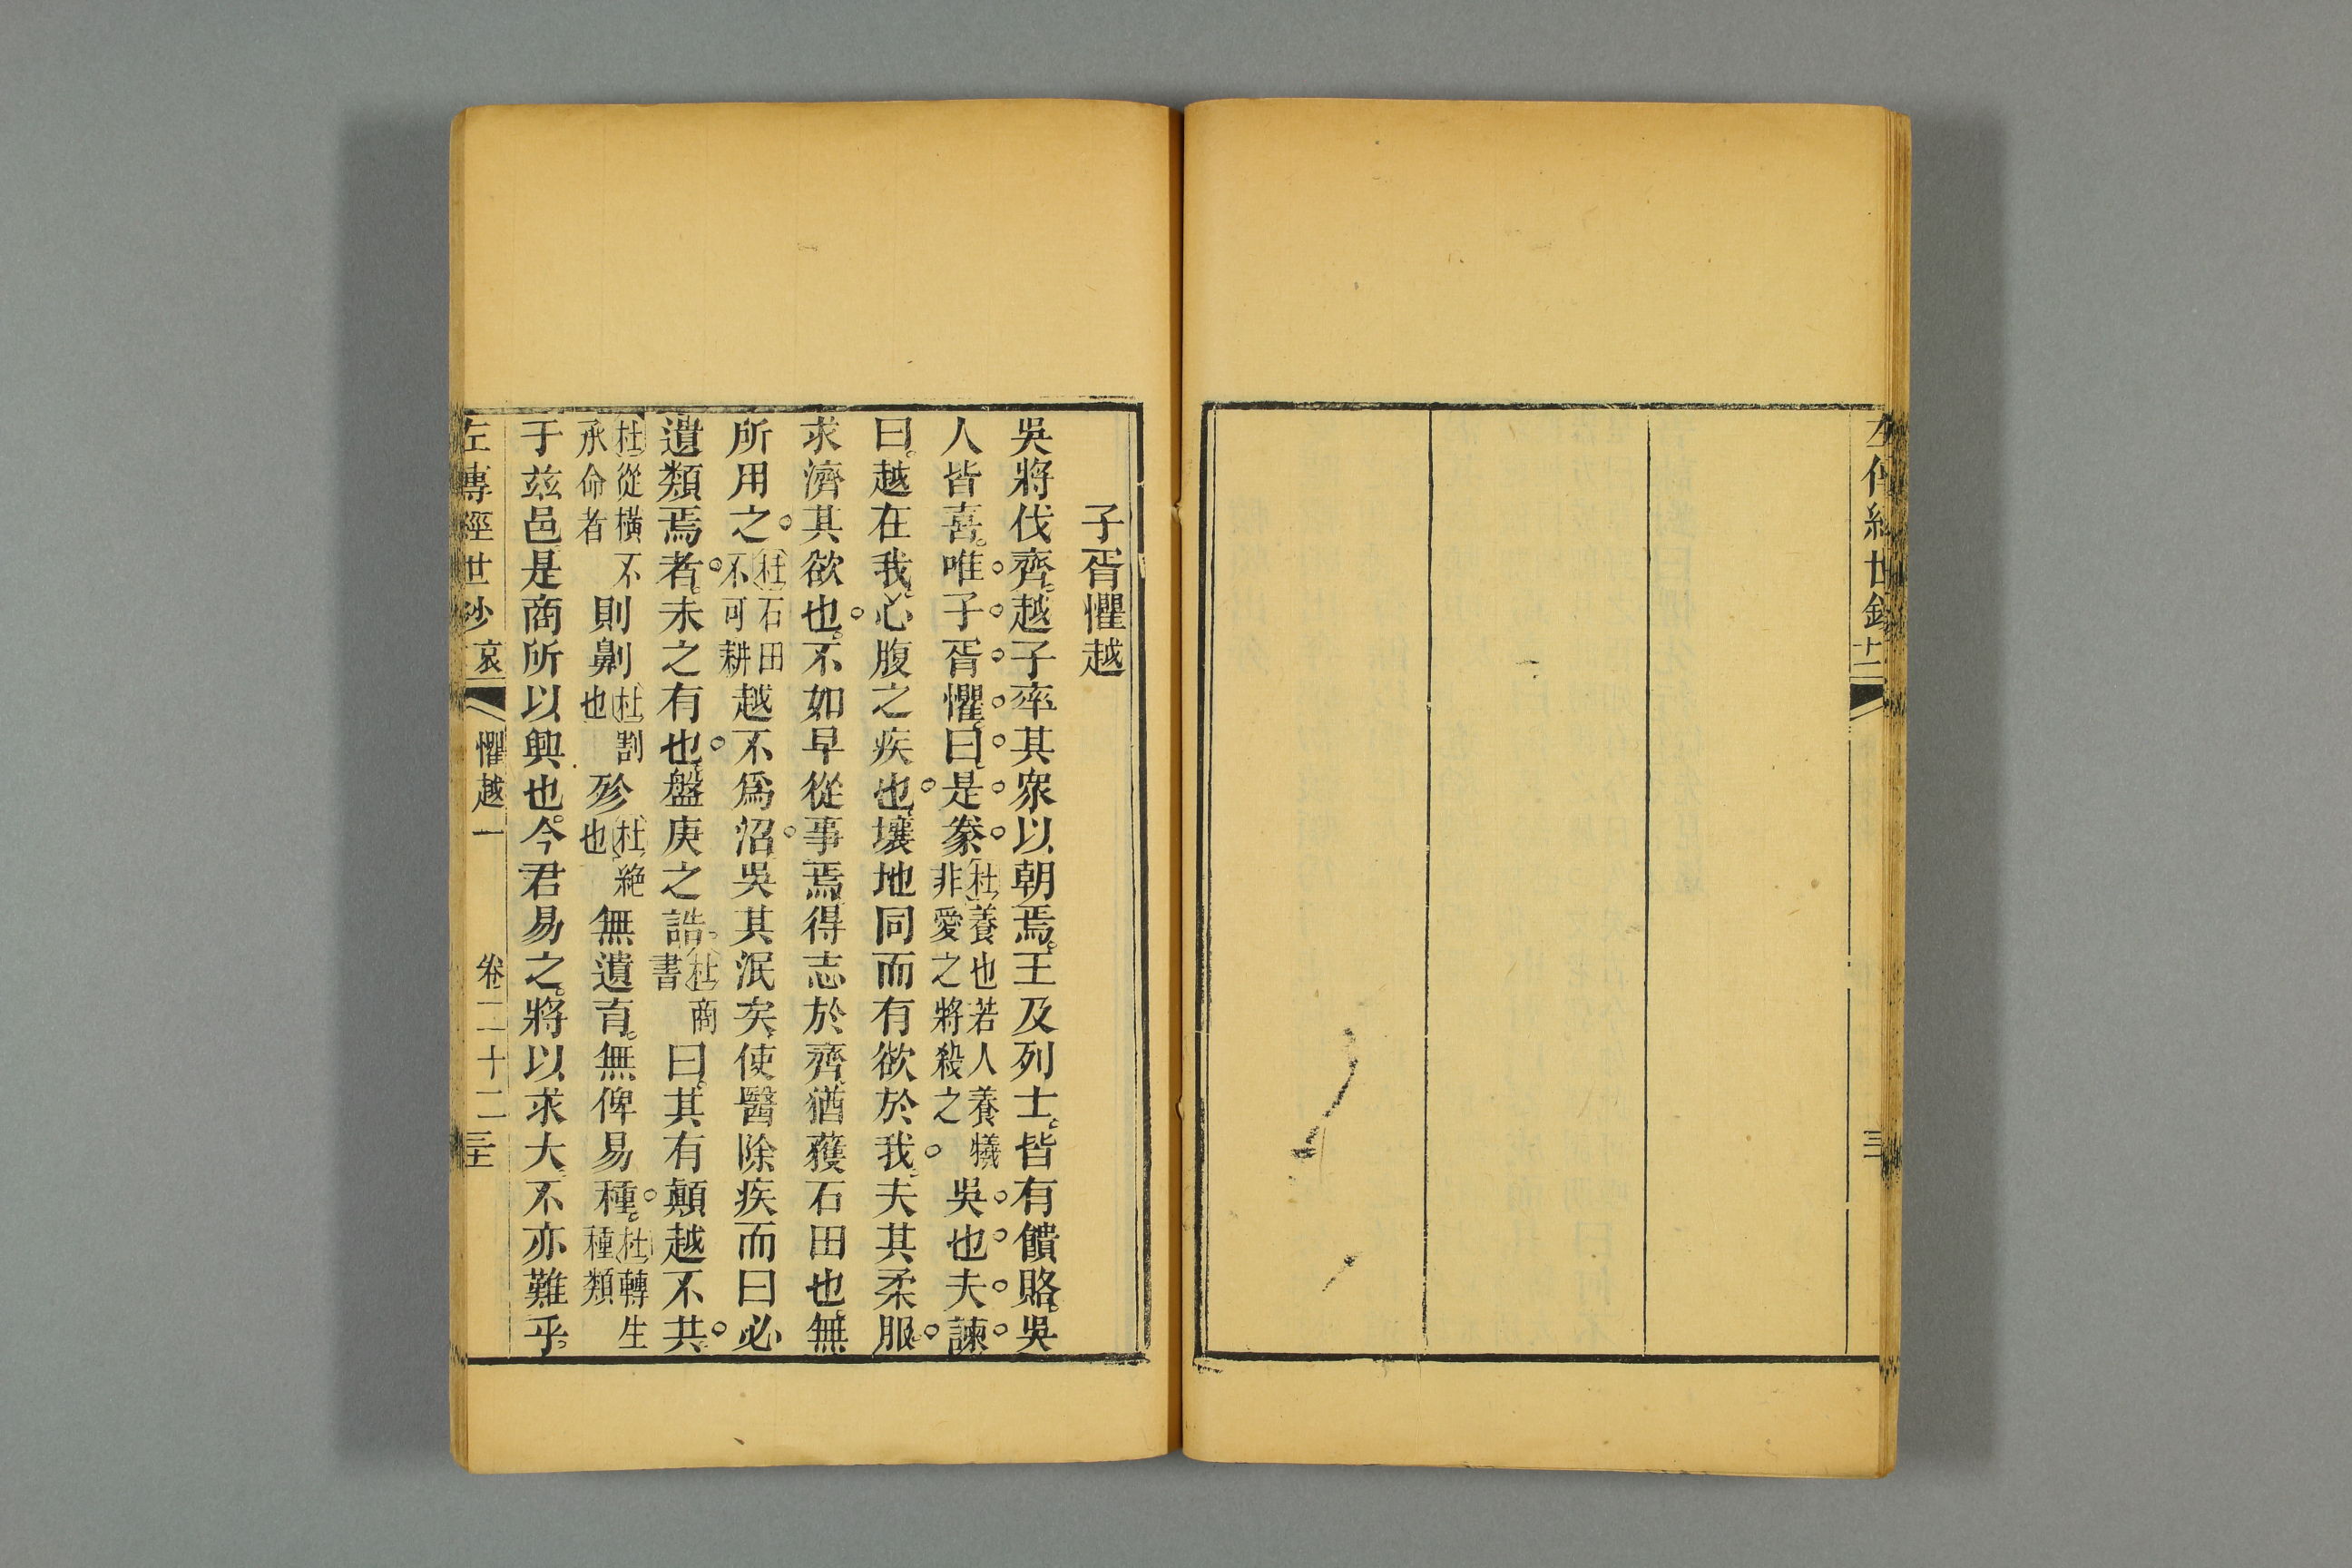 左傳經世鈔 十二 三
子胥懼越
吳將伐齊。越子率其衆以朝焉。王及列士。皆有饋賂。吳
人皆喜。唯子胥懼。曰。是豢 杜養也若人養犧非愛之將殺之 吳也夫諫
曰。越在我。心腹之疾也。壤地同而有欲於我。夫其柔服。
求濟其欲也。不如早從事焉。得志於齊。猶獲石田也。無
所用之。 杜石田不可耕 越不爲沼。吳其泯矣。使醫除疾。而曰必
遺類焉者。未之有也。盤庚之誥。 杜商書 曰。其有顛越不共。
杜從橫不承命者 則劓 杜割也 殄 杜絶也 無遺育。無俾易種。 杜轉生種類
于茲邑是商所以興也。今君易之。將以求大。不亦難乎。
左傳經世鈔 哀 懼越一 卷二十二